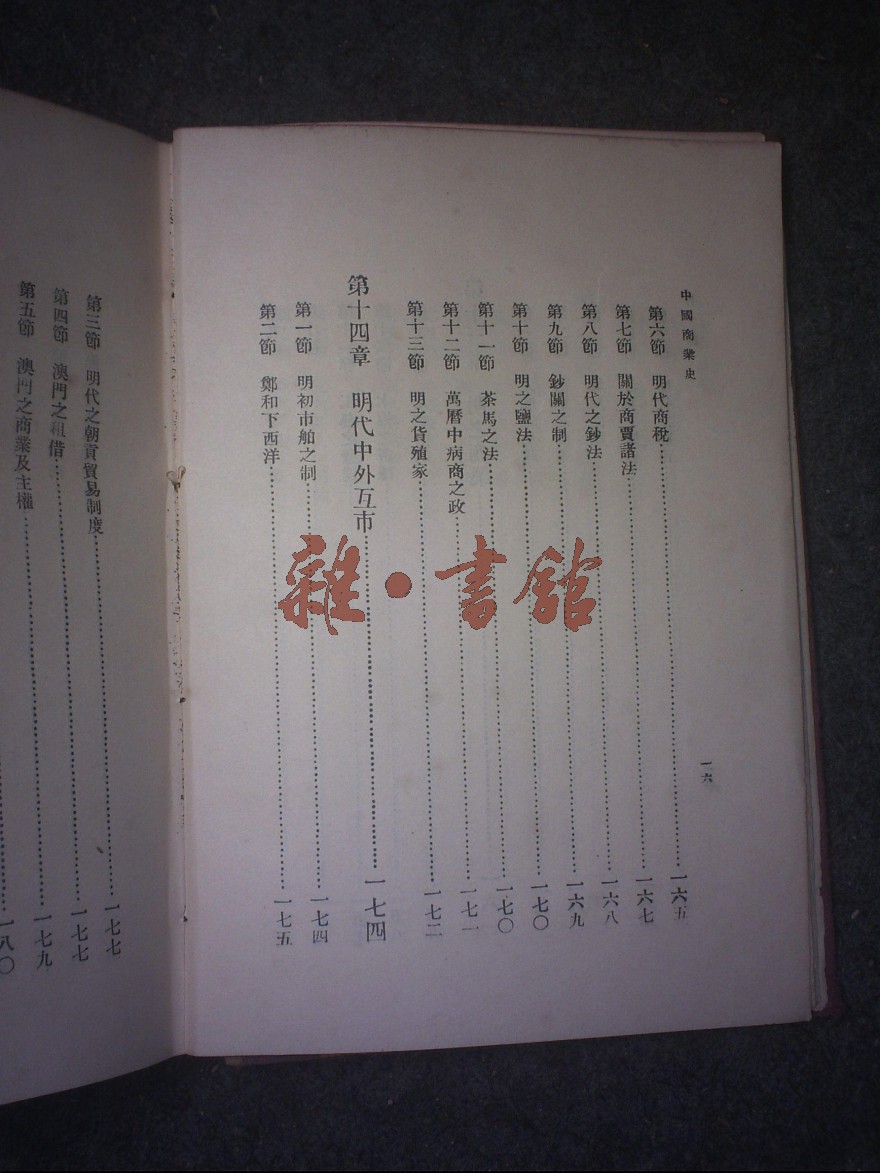 中國商業史
第六節　明代商稅……一六五
第七節　關於商賈諸法……一六七
第八節　明代之鈔法……一六八
第九節　鈔關之制……一六九
第十節　明之鹽法……一七〇
第十一節　茶馬之法……一七〇
第十二節　萬曆中病商之政……一七一
第十三節　明之貨殖家……一七二
第十四章　明代中外互市……一七四
第一節　明初市舶之制……一七四
第二節　鄭和下西洋……一七五
一六
第三節　明代之朝貢貿易制度……一七七
第四節　澳門之租借……一七七
第五節　澳門之商業及主權……一七九
一八〇
雜・書館